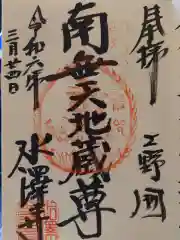 奉拝
上野國
南無大地蔵尊
水澤寺
令和六年
三月廿四日